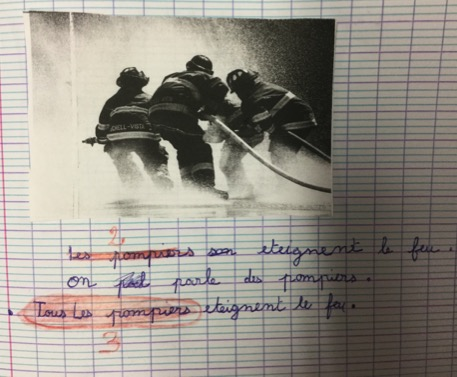 2.
Les pompiers son eteignent le feu.
on parle des pompiers.
Tous Les pompiers eteignent le feu.
3